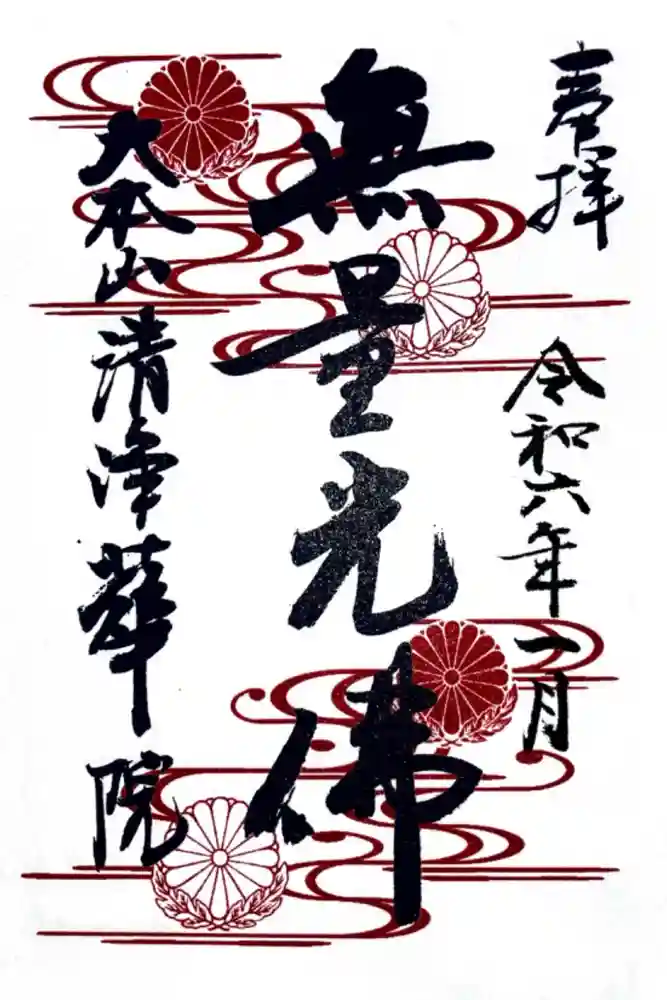 奉拝
令和六年一月
無量光佛
大本山清浄華院